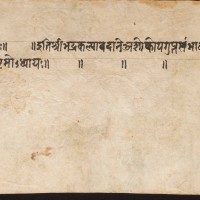 ः॥ ॥इतिश्रीभद्रकल्पावदानेअशोकोपगुप्तसंभा
मोऽध्यायः॥ ॥ ॥ ॥